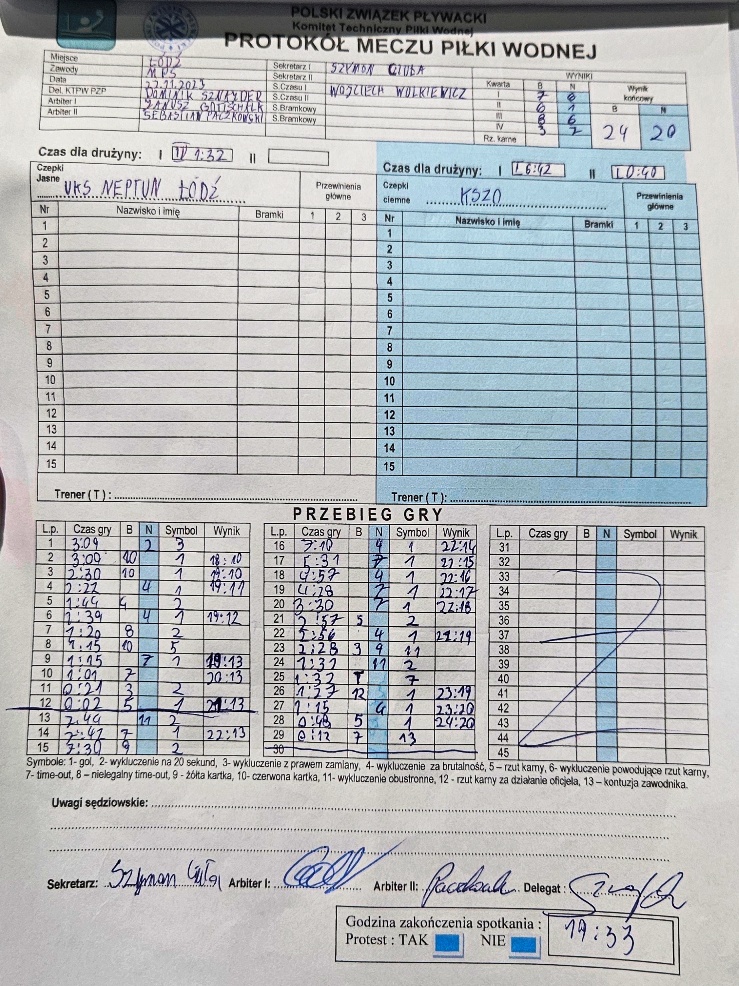 POLSKI ZWIĄZEK PŁYWACKI
Komitet Techniczny Piłki Wodnej
PROTOKÓŁ MECZU PIŁKI WODNEJ
Miejsce ŁÓDŹ Sekretarz I SZYMON
Zawody MPS Sekretarz II
Data 22.11.2023 S.Czasu I WOJCIECH WOLKIEWICZ
Del. KTPW PZP DOMINIK SZNAJDER S.Czasu II
Arbiter I JANUSZ S.Bramkowy
Arbiter II SEBASTIAN PACZKOWSKI S.Bramkowy
WYNIKI
Kwarta B N Wynik końcowy
I 7 6 B N
II 6 1 24 20
III 8 6
IV 3 7
Rz. karne
Czas dla drużyny: I IV 1:32 II
Czas dla drużyny: I 6:42 II 0:40
Czepki Jasne UKS NEPTUN ŁÓDŹ Przewinienia główne
Czepki ciemne KSZO Przewinienia główne
Nr Nazwisko i imię Bramki 1 2 3
Nr Nazwisko i imię Bramki 1 2 3
1 1
2 2
3 3
4 4
5 5
6 6
7 7
8 8
9 9
10 10
11 11
12 12
13 13
14 14
15 15
Trener ( T ) : Trener ( T ) :
PRZEBIEG GRY
L.p. Czas gry B N Symbol Wynik
1 3:09 2 3
2 3:00 10 1 18:10
3 2:30 10 1 19:10
4 2:22 4 1 19:11
5 1:44 4 2
6 1:39 4 1 19:12
7 1:20 8 2
8 1:15 10 5
9 1:15 7 1 19:13
10 1:01 7 20:13
11 0:21 3 2
12 0:02 5 1 21:13
13 7:44 11 2
14 7:42 7 1 22:13
15 7:30 9 2
L.p. Czas gry B N Symbol Wynik
16 7:10 4 1 22:14
17 5:31 7 1 22:15
18 4:57 4 1 22:16
19 4:28 7 1 22:17
20 3:30 7 1 22:18
21 2:57 5 2
22 2:56 4 1 22:19
23 2:28 3 9 11
24 1:31 11 2
25 1:32 T 7
26 1:27 12 1 23:19
27 1:15 4 1 23:20
28 0:48 5 1 24:20
29 0:12 7 13
30
L.p. Czas gry B N Symbol Wynik
31
32
33
34
35
36
37
38
39
40
41
42
43
44
45
Symbole: 1- gol, 2- wykluczenie na 20 sekund, 3- wykluczenie z prawem zamiany, 4- wykluczenie za brutalność, 5 – rzut karny, 6- wykluczenie powodujące rzut karny,
7- time-out, 8 – nielegalny time-out, 9 - żółta kartka, 10- czerwona kartka, 11- wykluczenie obustronne, 12 - rzut karny za działanie oficjela, 13 – kontuzja zawodnika.
Uwagi sędziowskie:
Sekretarz: Szymon Arbiter I: Arbiter II: Delegat :
Godzina zakończenia spotkania : 19:33
Protest : TAK NIE